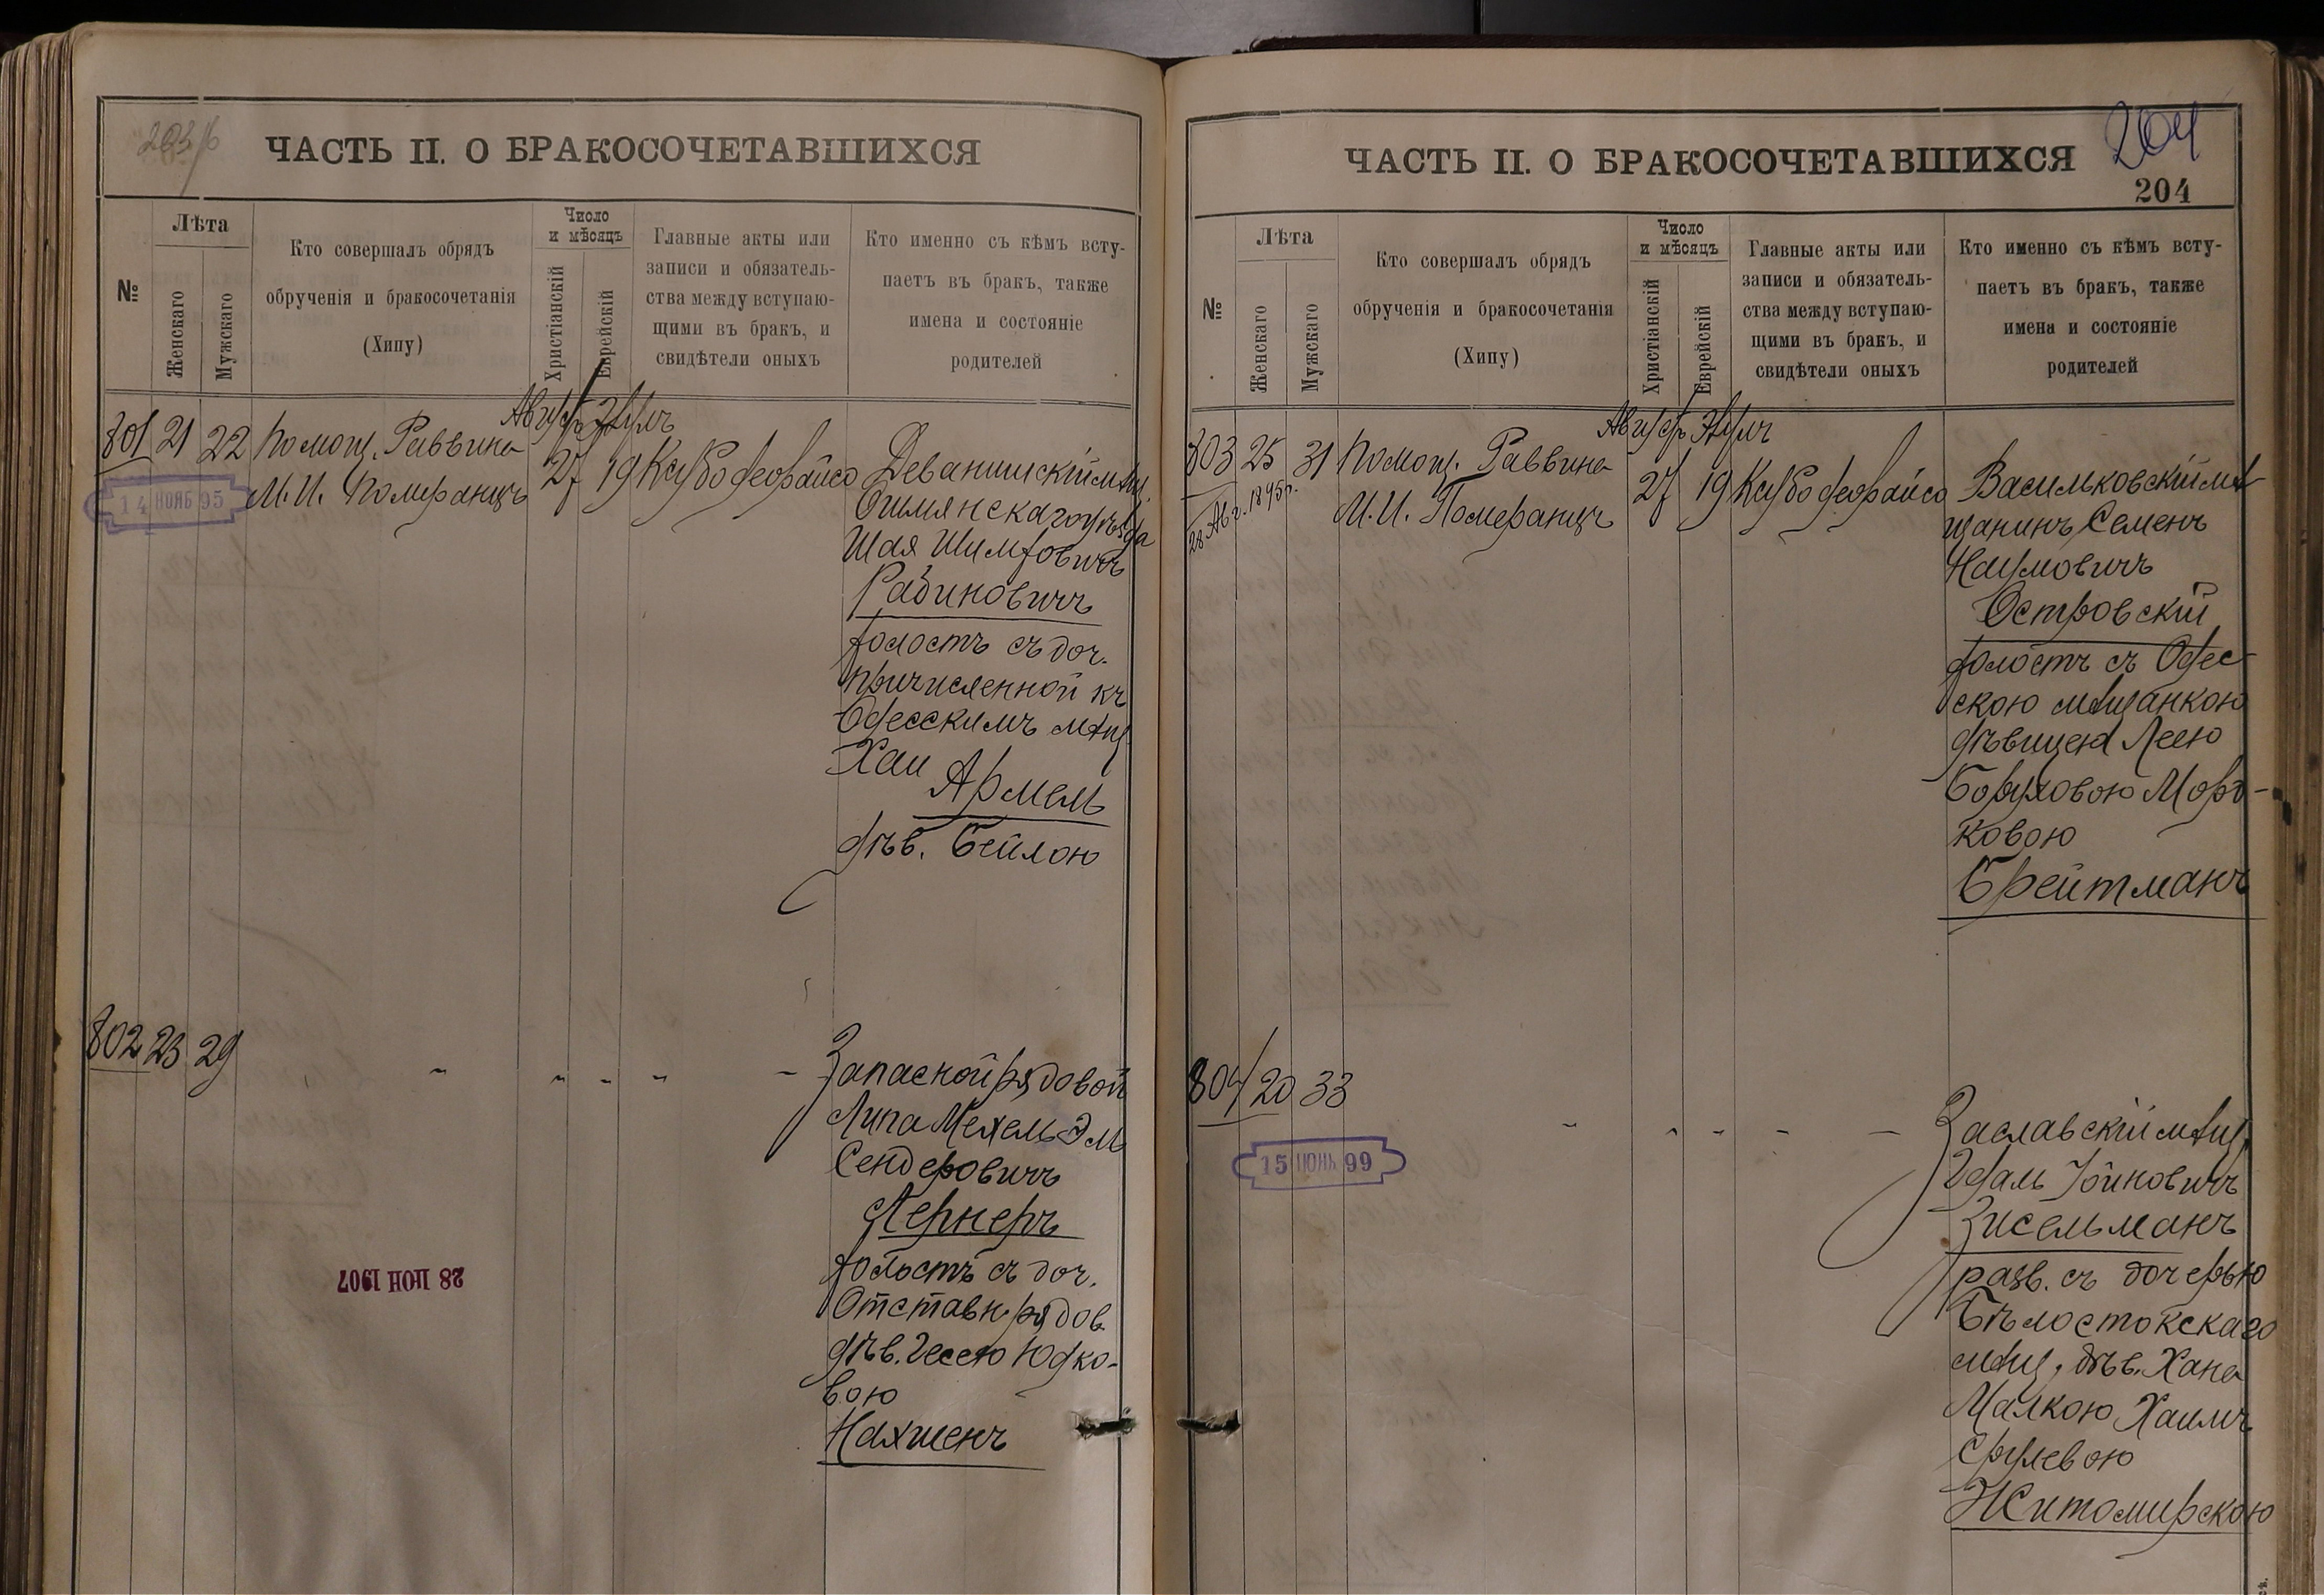 203/б
ЧАСТЬ II. О БРАКОСОЧЕТАВШИХСЯ
№
Лѣта
Женскаго
Мужскаго
Кто совершалъ обрядъ
обрученія и бракосочетанія
(Хипу)
Число
и мѣсяцъ
Христіанскій
Еврейскій
Главные акты или
записи и обязатель-
ства между вступаю-
щими въ бракъ, и
свидѣтели оныхъ
Кто именно съ кѣмъ всту-
паетъ въ бракъ, также
имена и состояніе
родителей
Августъ Элулъ
801 21 22 Помощ. Раввина
М. И. Померанцъ
27 19 Ксубо деорайсо
14 НОЯБ 95
Деванишскій мѣщ.
Ошмянскаго уѣзда
Шая Шимховичъ
Рабиновичъ
холостъ съ доч.
причисленной къ
Одесскимъ мѣщ
Хаи
Армель
дѣв. Бейлою
802 23 29 " " " " "
Запасной рядовой
Липа Мехель Эль
Сендеровичъ
Лернеръ
холостъ съ доч.
Отставн. рядов.
дѣв. Гессею Юдко-
вою
Нахшенъ
28 ІЮН 1907
204
ЧАСТЬ II. О БРАКОСОЧЕТАВШИХСЯ
204
№
Лѣта
Женскаго
Мужскаго
Кто совершалъ обрядъ
обрученія и бракосочетанія
(Хипу)
Число
и мѣсяцъ
Христіанскій
Еврейскій
Главные акты или
записи и обязатель-
ства между вступаю-
щими въ бракъ, и
свидѣтели оныхъ
Кто именно съ кѣмъ всту-
паетъ въ бракъ, также
имена и состояніе
родителей
Августъ Элулъ
803 25 31 Помощ. Раввина
М. И. Померанцъ
27 19 Ксубо деорайсо
28 Авг. 1895 г.
Васильковскій мѣ-
щанинъ Семенъ
Наумовичъ
Островскій
холостъ съ Одес-
скою мѣщанкою
дѣвицею Леею
Боруховою Морд-
ковою
Брейтманъ
804 20 33 " " " " "
15 ІЮНЬ 99
Заславскій мѣщ.
Гдаль Іойновичъ
Зисельманъ
разв. съ дочерью
Бѣлостокскаго
мѣщ. дѣв. Хана
Малкою Хаимъ
Срулевою
Житомирскою